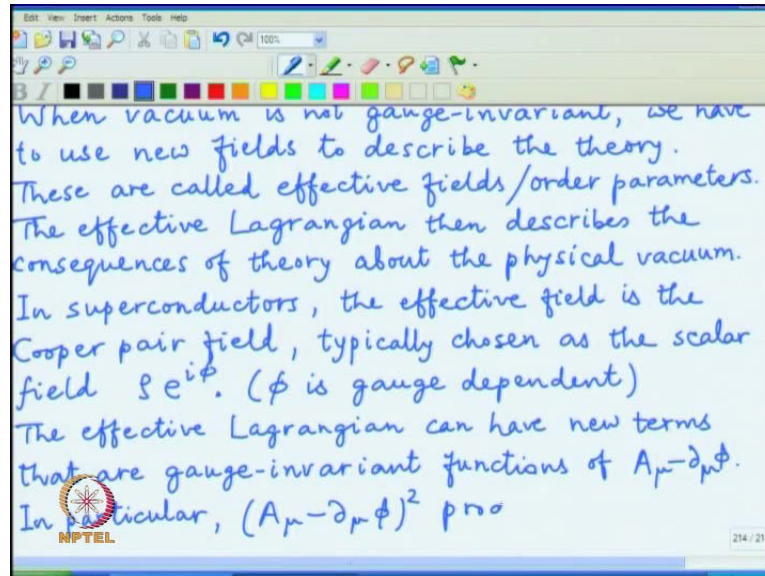 Edit View Insert Actions Tools Help
100%
B I
When vacuum is not gauge-invariant, we have
to use new fields to describe the theory.
These are called effective fields/order parameters.
The effective Lagrangian then describes the
consequences of theory about the physical vacuum.
In superconductors, the effective field is the
Cooper pair field, typically chosen as the scalar
field ρe^{iϕ}. (ϕ is gauge dependent)
The effective Lagrangian can have new terms
that are gauge-invariant functions of A_μ-∂_μϕ.
In particular, (A_μ-∂_μϕ)² proo
NPTEL
214 / 21